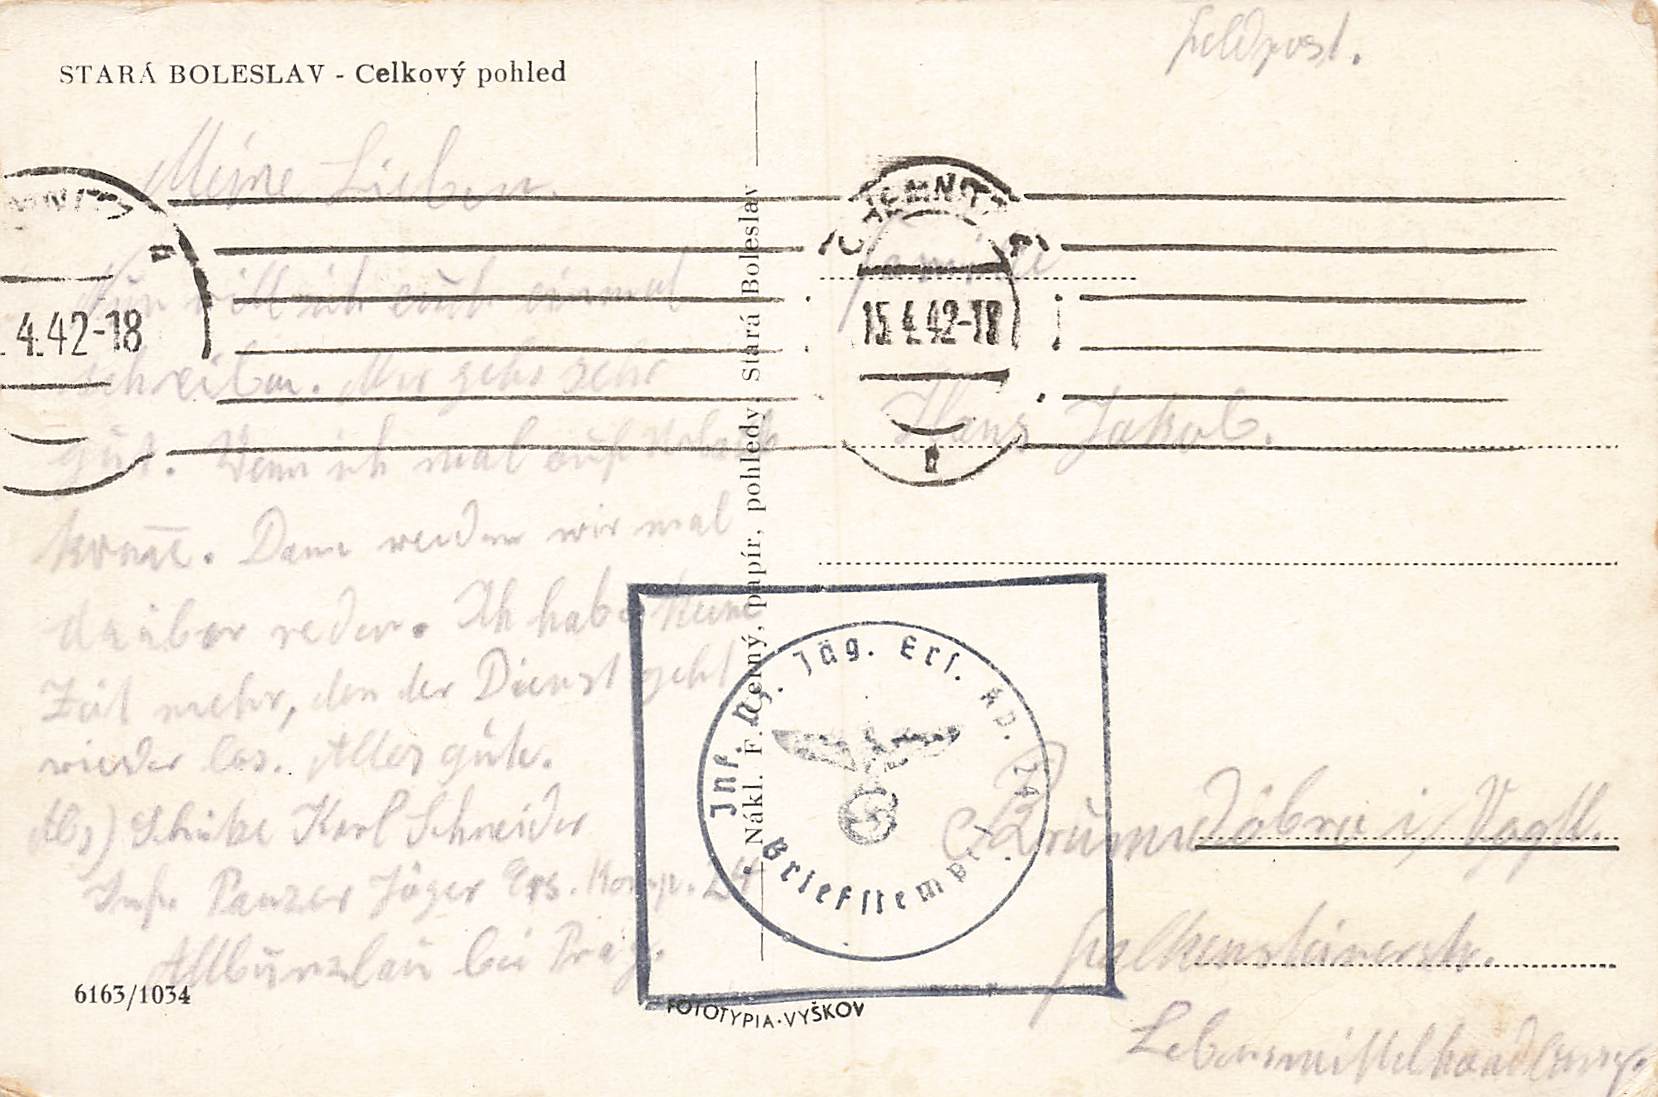 STARÁ BOLESLAV - Celkový pohled
Feldpost.
Meine Lieben.
Nun will ich euch einmal
schreiben. Mir gehs sehr
gut. Wenn ich mal auf Urlaub
komme. Dann werden wir mal
darüber reden. Ich habe keine
Zeit mehr, den der Dienst geht
wieder los. Alles gute.
Abs) Schütze Karl Schneider
Inf. Panzer Jäger Ers. Komp. 24
Altbunzlau bei Prag.
6163/1034
Nákl. F. Černý, papír, pohledy, Stará Boleslav
FOTOTYPIA-VYŠKOV
4.42-18
15.4.42-18
Familie
Hans Jakob.
Brunndöbra i/ Vogtl.
Falkensteinerstr.
Lebensmittelhandlung.
Inf. Pz. Jäg. Ers. Kp. 24
Briefstempel